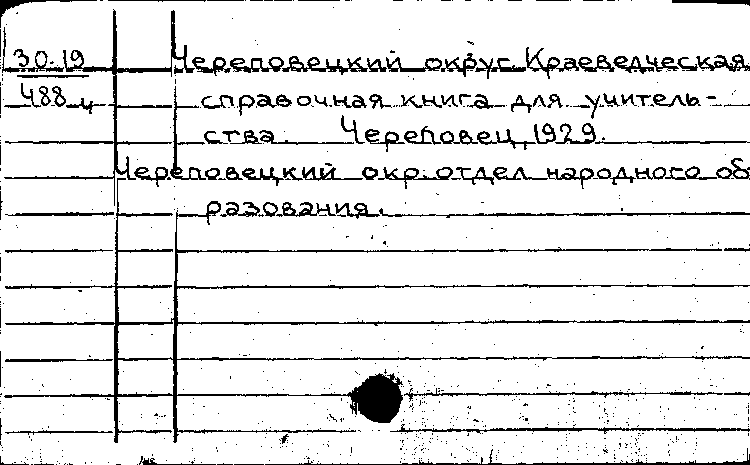 30-19 Череповецкий округ. Краеведческая
488 ч справочная книга для учитель-
ства. Череповец, 1929.
Череповецкий окр. отдел народного об
разования.